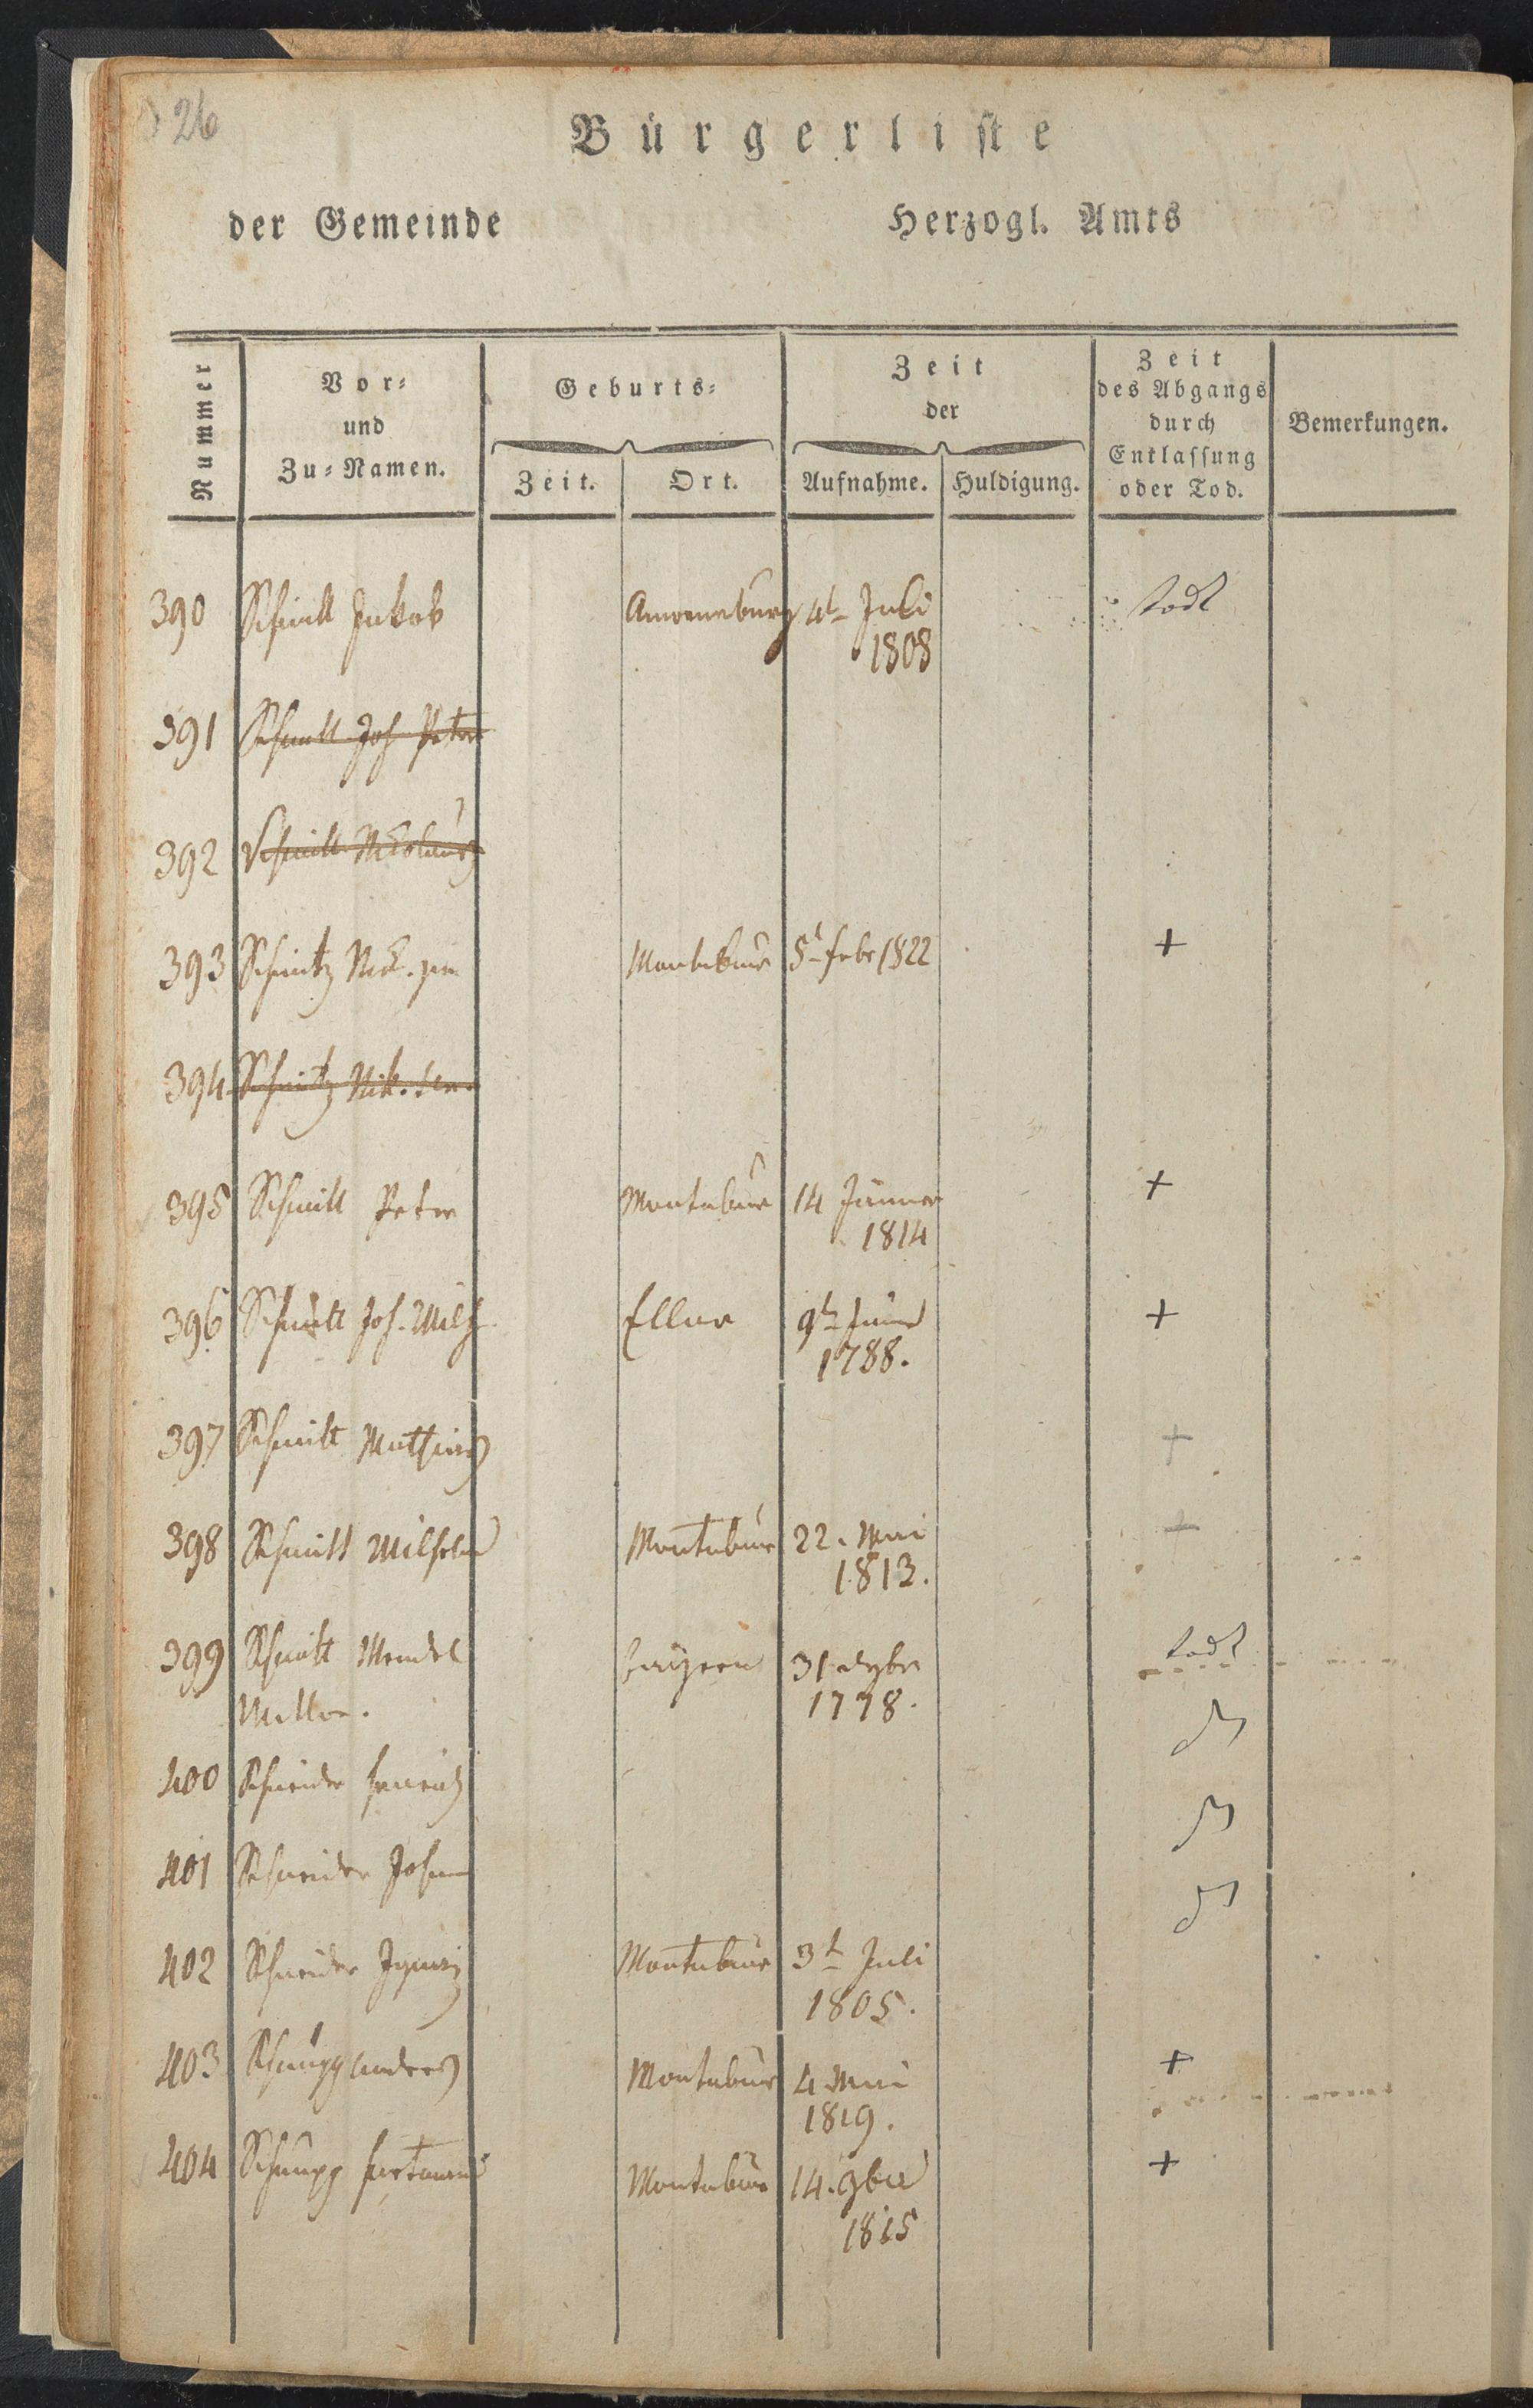 26
Bürgerliste
der Gemeinde Herzogl. Amts
Nummer Vor- und Zu-Namen. Geburts- Zeit. Ort. Zeit der Aufnahme. Huldigung. Zeit des Abgangs durch Entlassung oder Tod. Bemerkungen.
390 Schmitt Jakob Amoeneburg 4t Juli todt
1808
391 Schmitt Joh Peter
392 Schmitt Nikolaus
393 Schmitz Nik. jun Montabaur 5t Febr 1822 +
394 Schmitz Nik. sen.
395 Schmitt Peter Montabaur 14 Jänner +
1814
396 Schmitt Joh. Wilh Ellar 9t +
1788.
397 Schmitt Mathias +
398 Schmitt Wilhelm Montabaur 22. Mai +
1813.
399 Schmitt Wendel Bayern 31 todt
1778.
400 Schneider Henrich
401 Schneider Johann
402 Schneider Ignatz Montabaur 3t Juli
1805.
403 Schnupp Andreas Montabaur 4 Mai +
1819.
404 Schnupp Hartmann Montabaur 14. 9ber +
1815